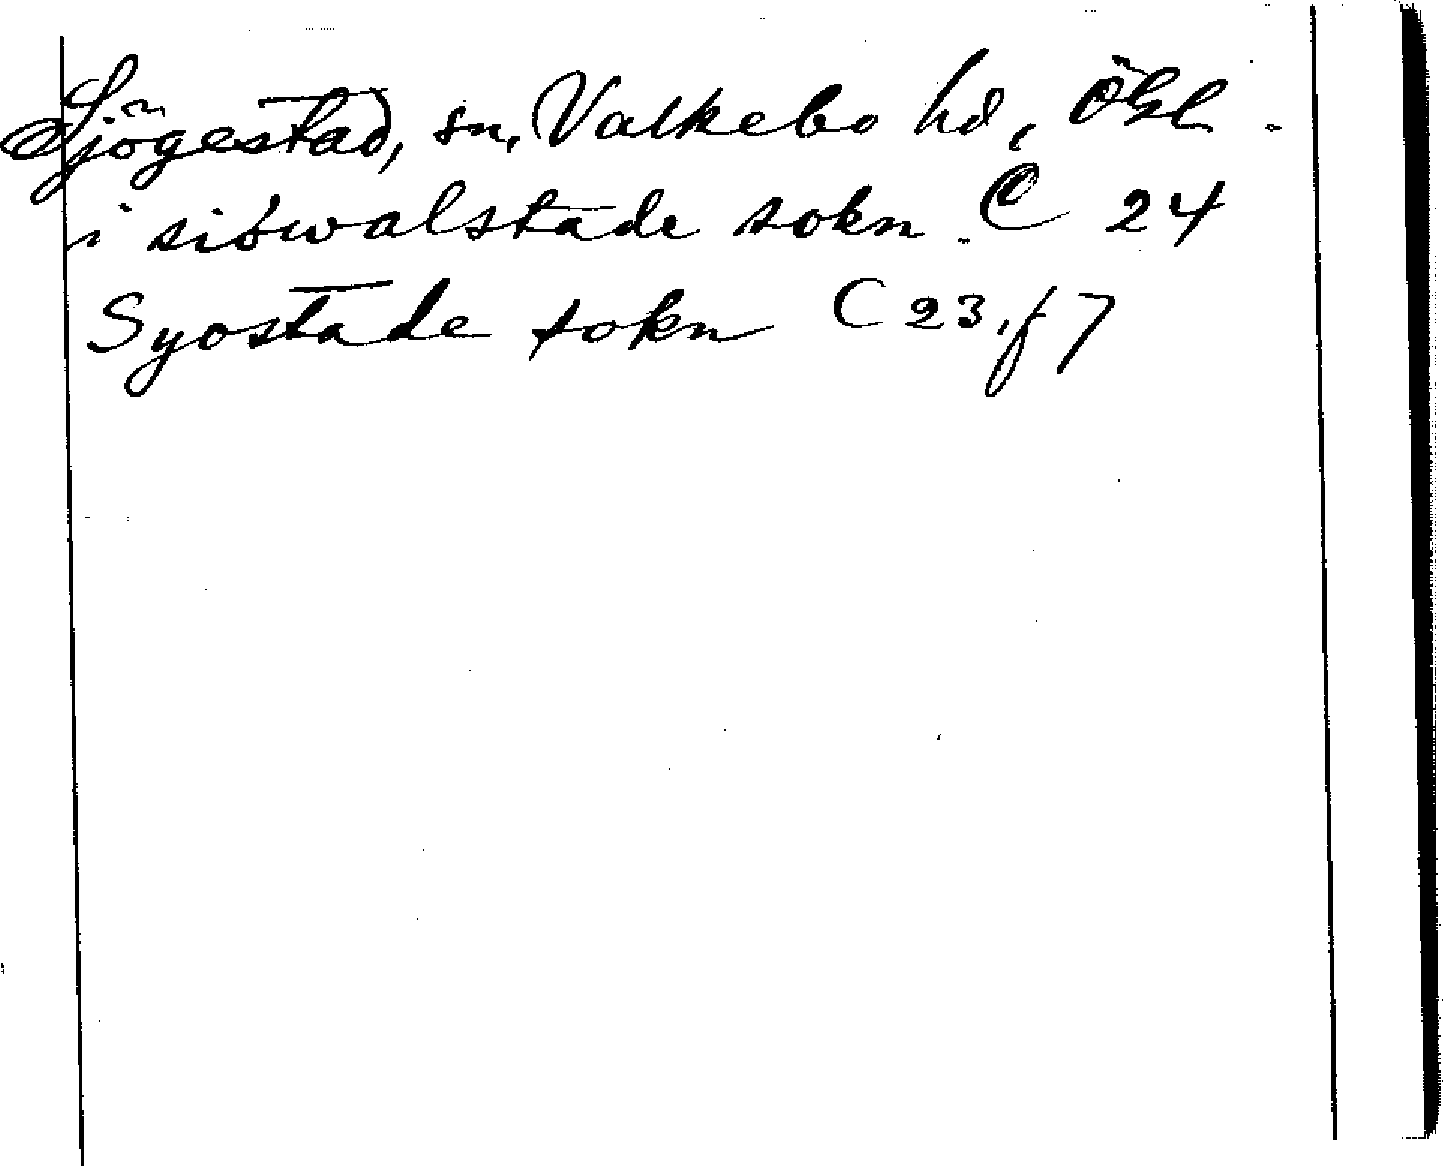 Sjögestad, sn, Valkebo hd, Ögl.
i siöwalstade sokn. C 24
Syostade sokn C 23, f 7